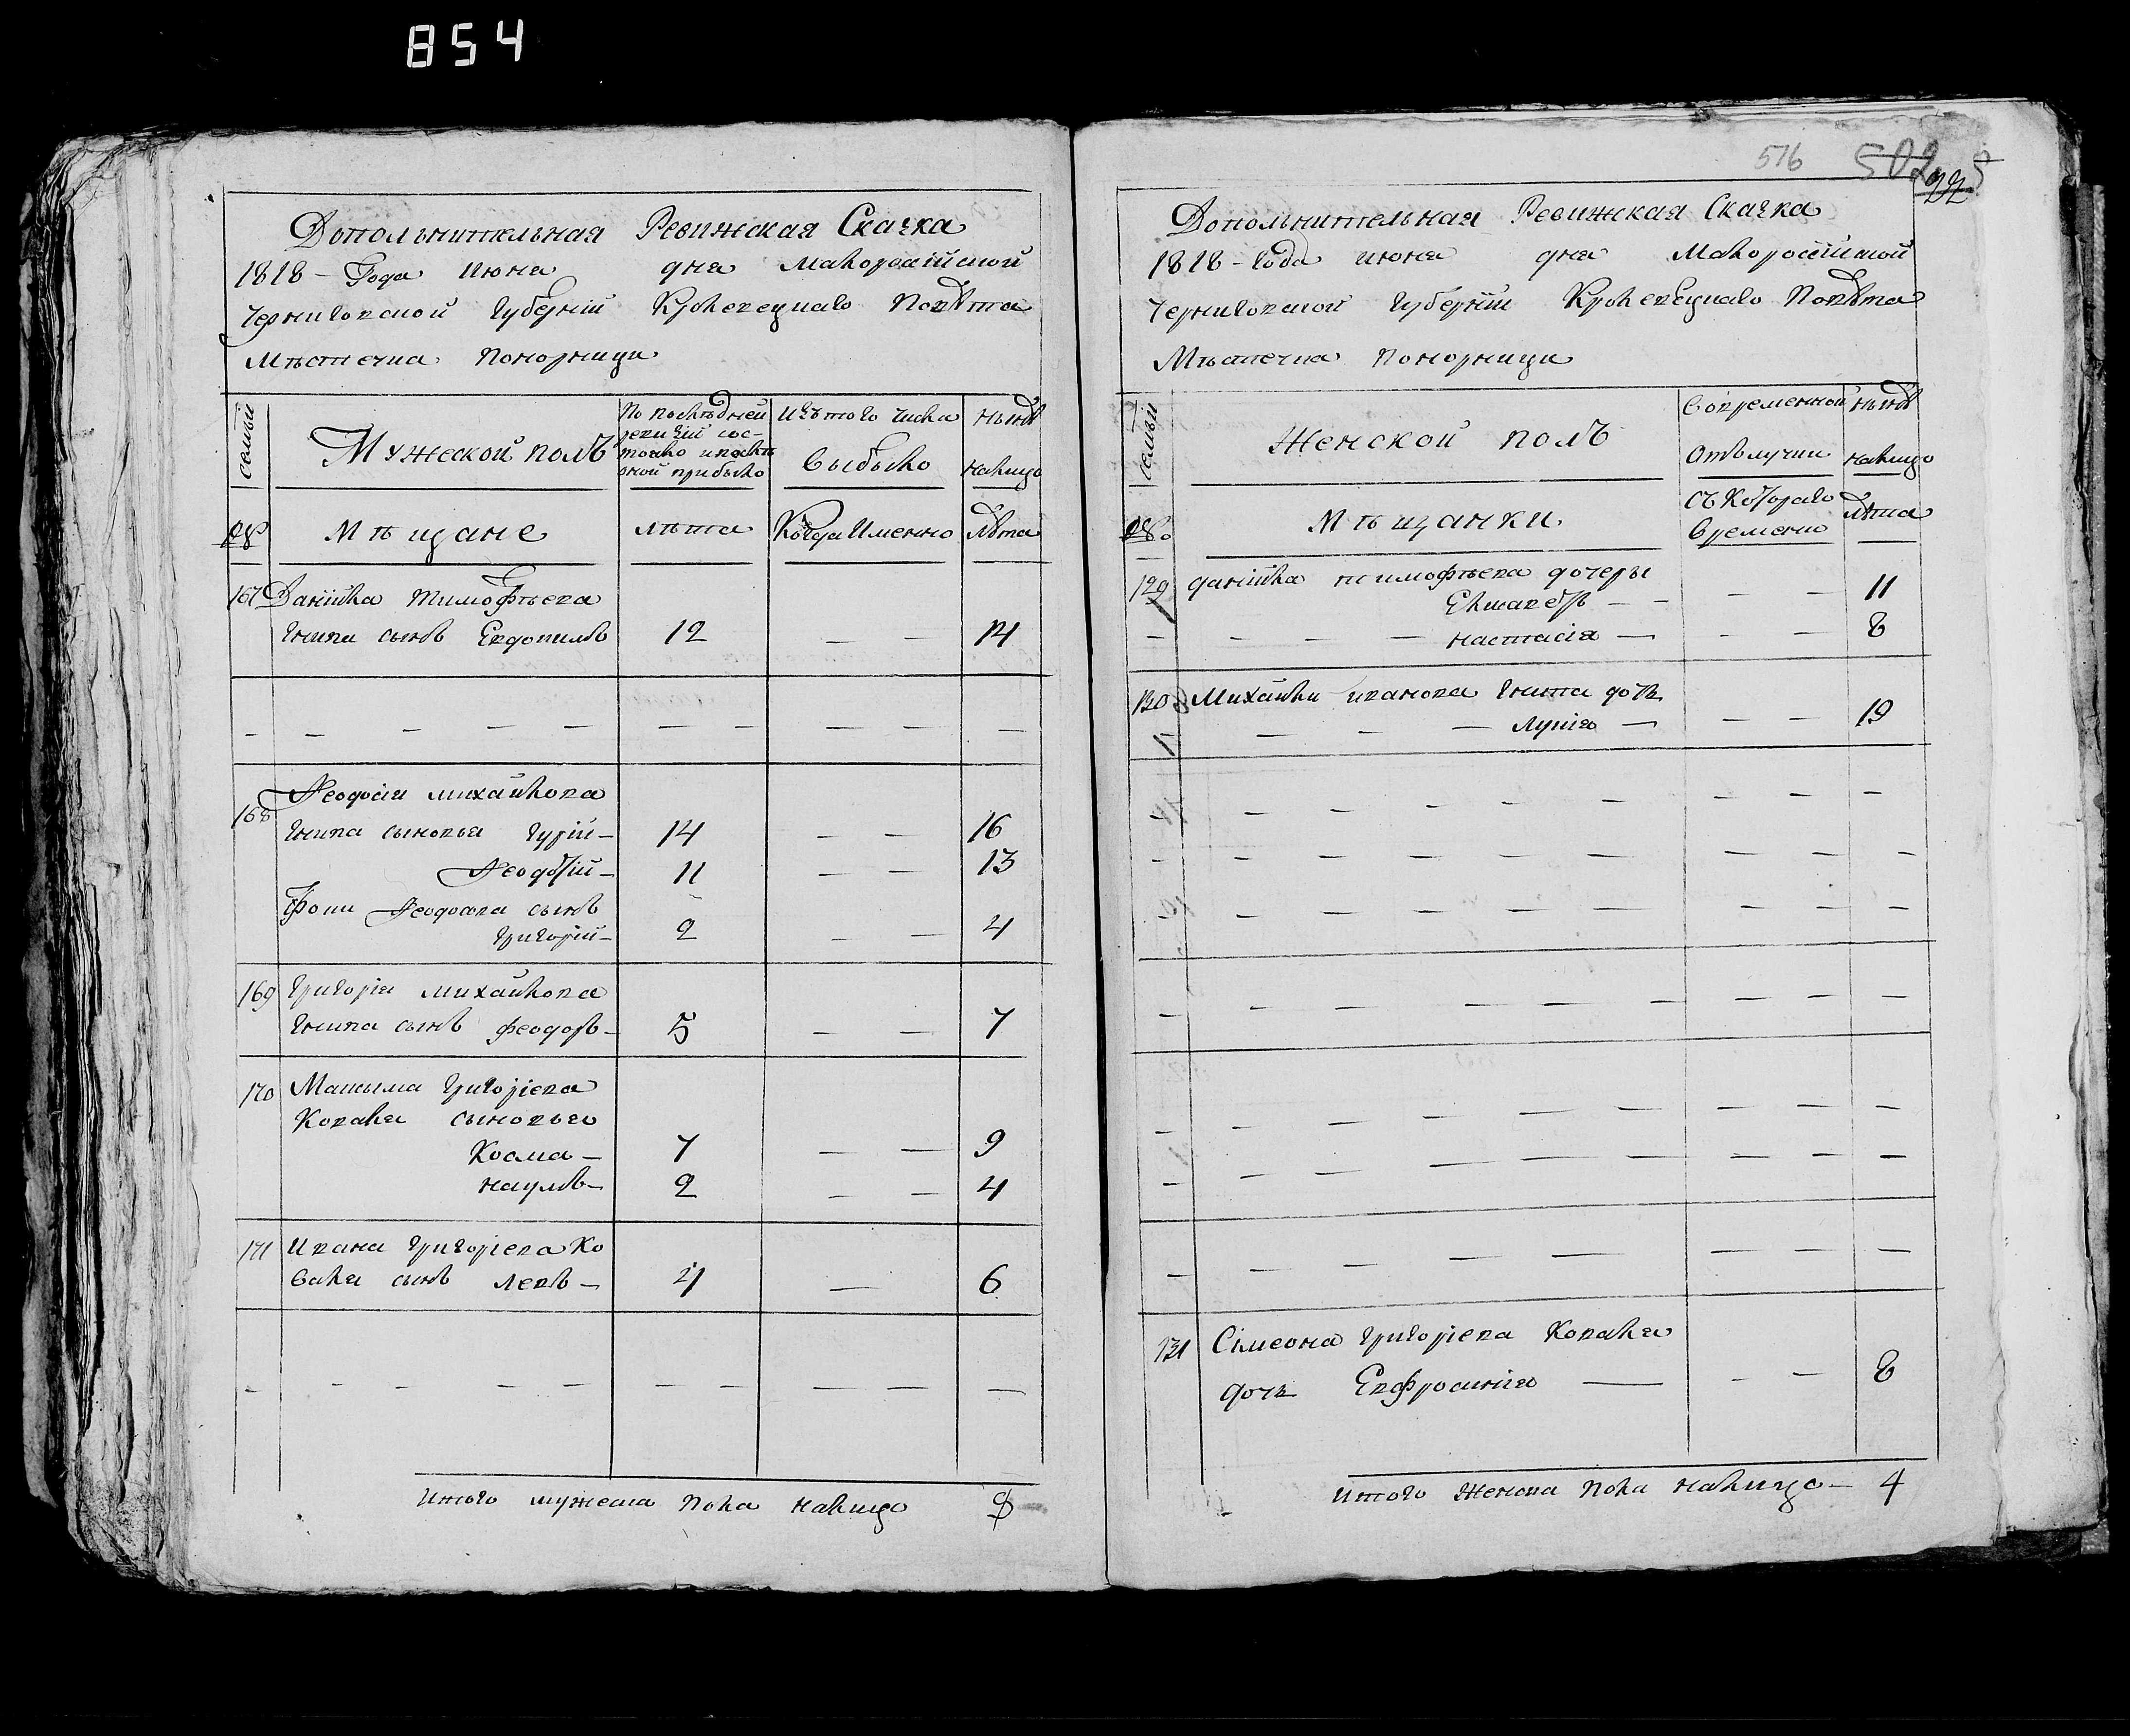 854
516
502
Дополнителная Ревижская Сказка
1818 – Года июня дня Малоросійской
Черниговской Губерніи Кролевецкаго Повѣта
Мѣстечка Понорницы
семьи
Мужеской полъ
По послѣдней ревизіи состояло и послѣ оной прибыло
Изъ того числа выбыло
нынѣ налицо
№
Мѣщане
лѣта
Когда Именно
лѣта
167 Данійла Тимофѣева
сынъ Евдокимъ 12 – – 14
– – – – – – – – – –
168 Феодосія михайлова
сыновья Гурій – 14 – – 16
Феодосій – 11 – – 13
Феодосіева сынъ
Григорій – 2 – – 4
169 Григорія михайлова
сынъ феодоръ – 5 – – 7
170 Максыма Григоріева
Коваля сыновья
Козма – 7 – – 9
наумъ – 2 – – 4
171 Ивана Григоріева Ко
валя сынъ Левъ – 4 – 6
– – – – – – – – – –
Итого мужеска пола налицо 9
Дополнительная Ревижская Сказка
1818 – Года июня дня Малоросійской
Черниговской Губерніи Кролевецкаго Повѣта
Мѣстечка Понорницы
семьи
Женской полъ
Во временной отлучки
нынѣ налицо
№
Мѣщанки
Съ Котораго времени
лѣта
129 данійла тимофѣева дочеры
Елисаветъ – – – – 11
– – – – настасія – – – 8
130 Михайлы иванова дочь
– – – Лукія – – – 19
131 Сімеона Григоріева Коваля
дочь Евфросинія – – – 8
Итого женска пола налицо – 4